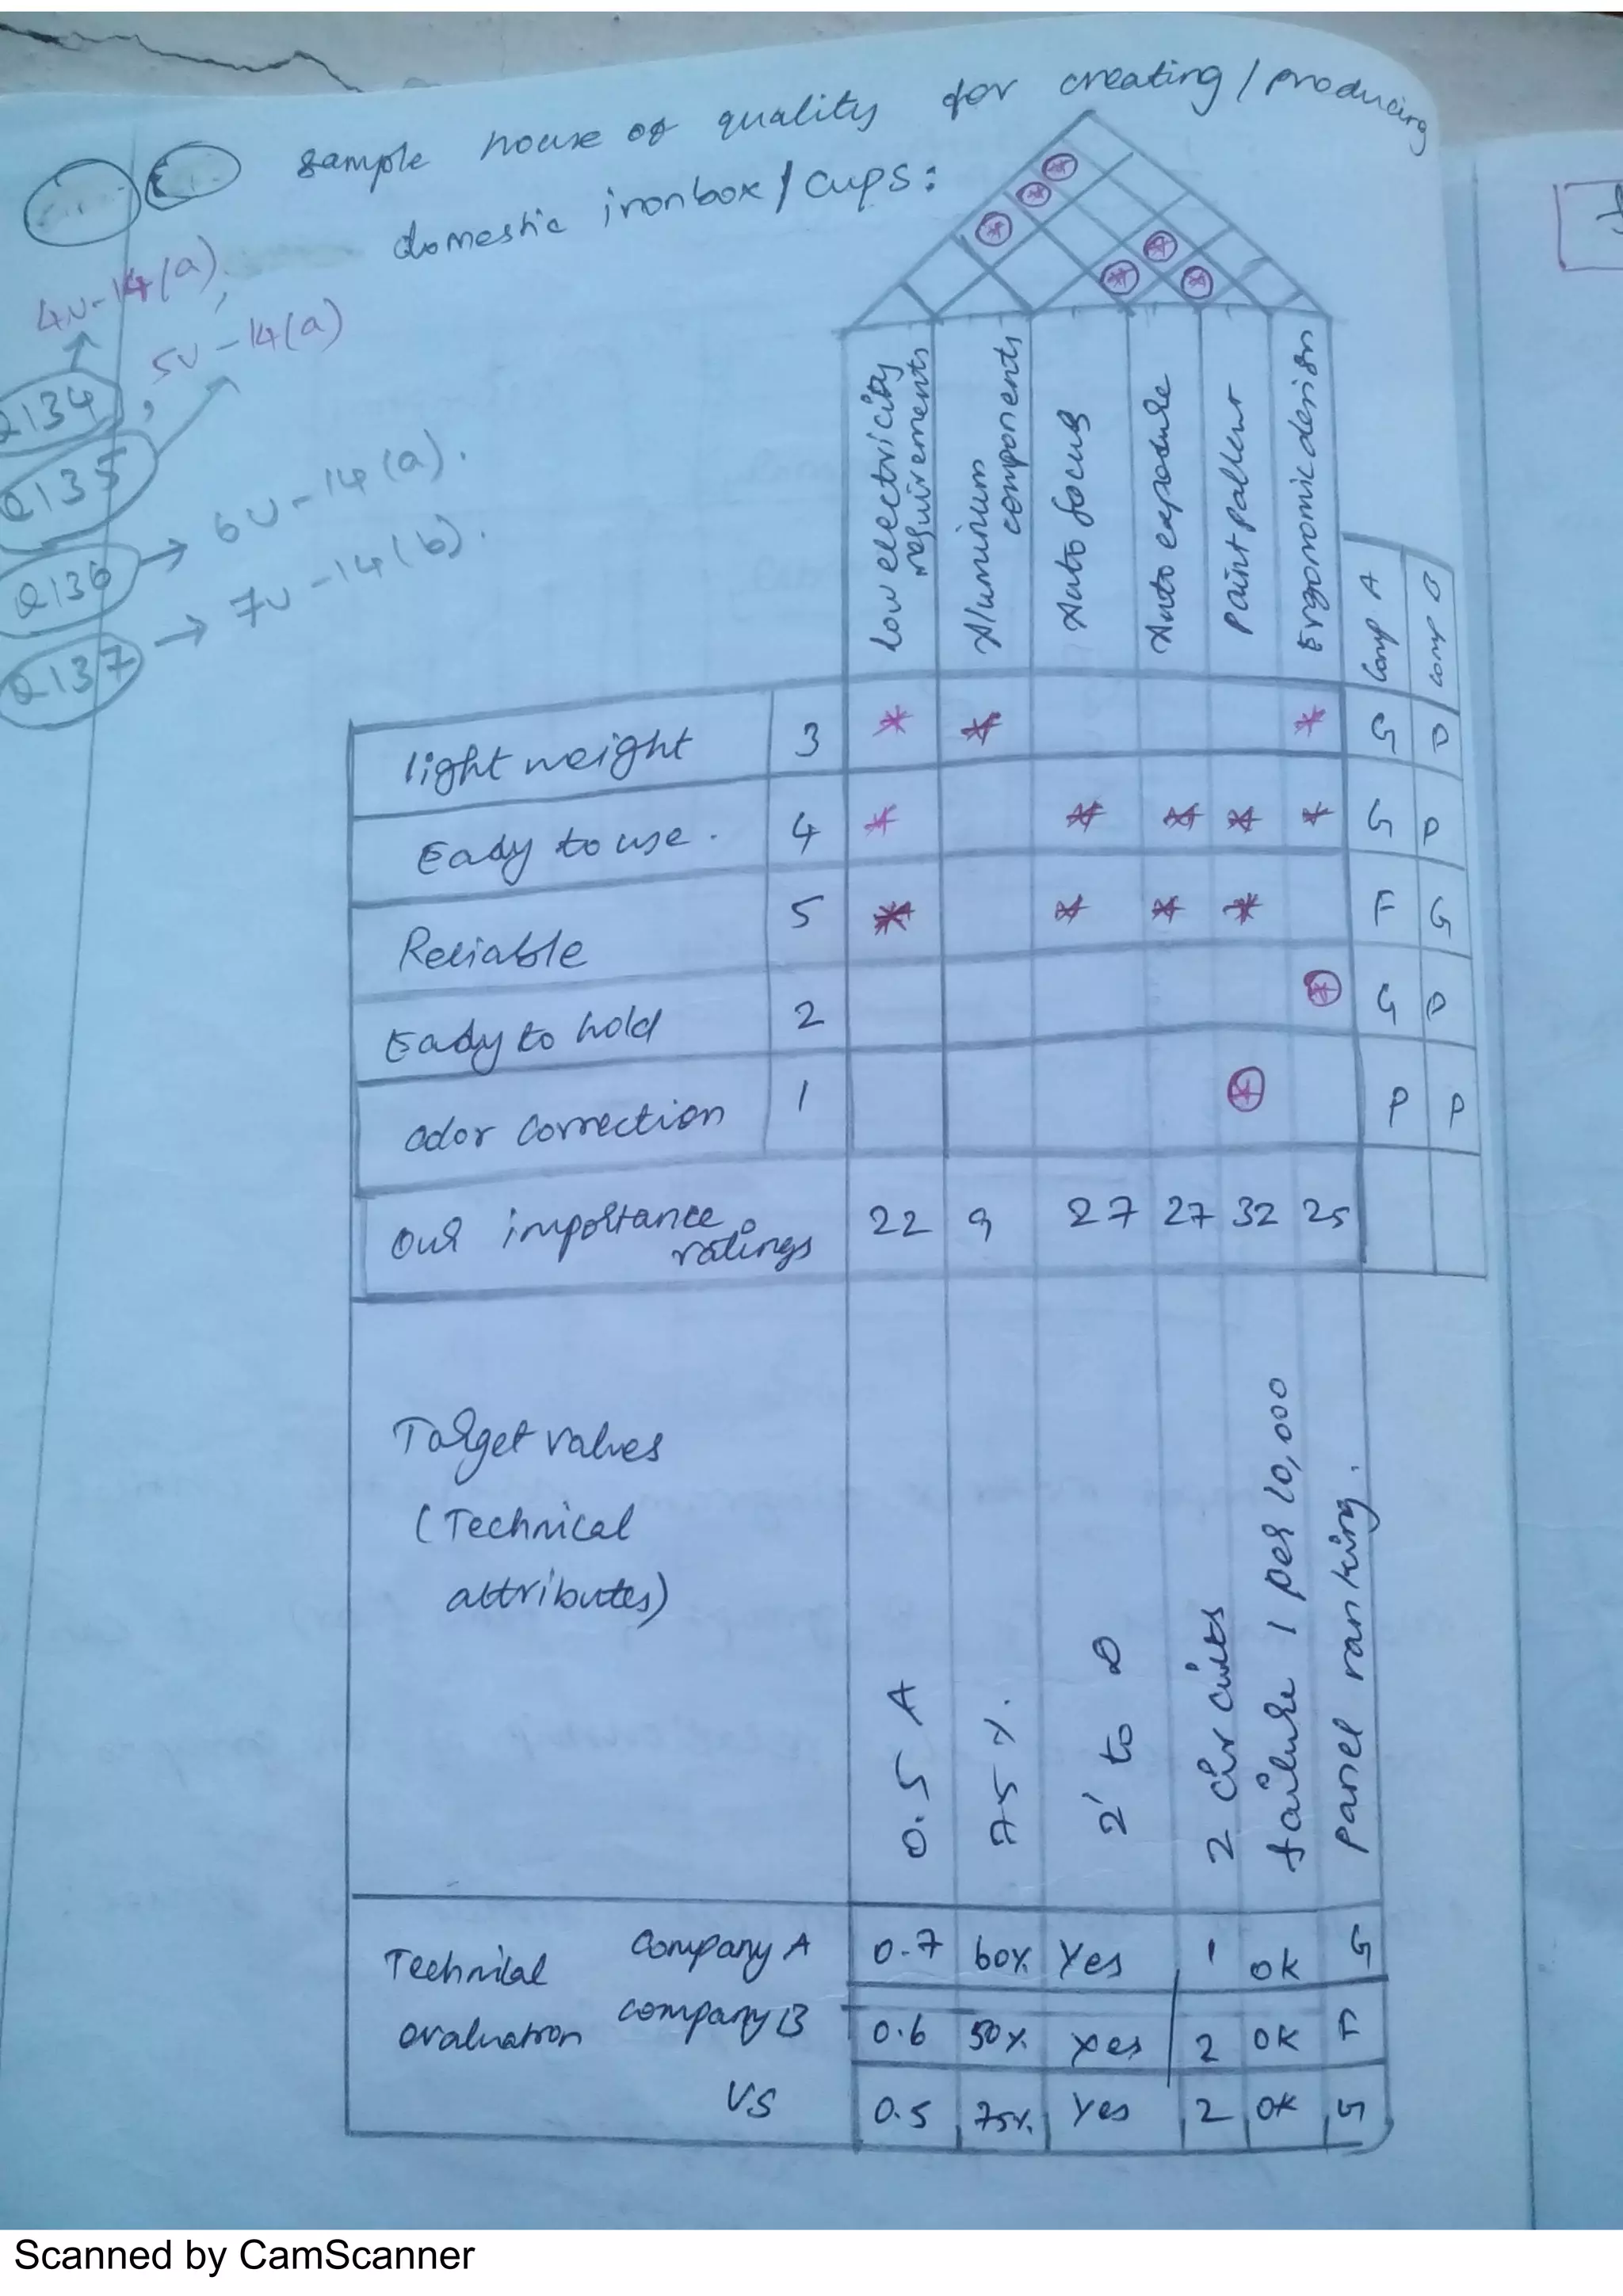 sample house of quality for creating / producing
domestic ironbox / cups:
4U-14(a),
5U-14(a)
Q134,
Q135
Q136 → 6U-14(a).
Q137 → 7U-14(b).
Low electricity
requirements
Aluminium
components
Auto focus
Auto exposure
Paint pallent
Ergonomic design
Comp A
Comp B
light weight 3 * * * G P
Eady to use. 4 * * * * * G P
Reliable 5 * * * * F G
Eady to hold 2 * G P
odor correction 1 * P P
Our importance
ratings 22 9 27 27 32 25
Target values
(Technical
attributes)
0.5 A
75 %.
2' to ∞
2 circuits
failure 1 per 10,000
Panel ranking.
Technical
evaluation
Company A 0.7 60% Yes 1 ok G
company B 0.6 50% yes 2 OK F
US 0.5 75% Yes 2 OK G
Scanned by CamScanner